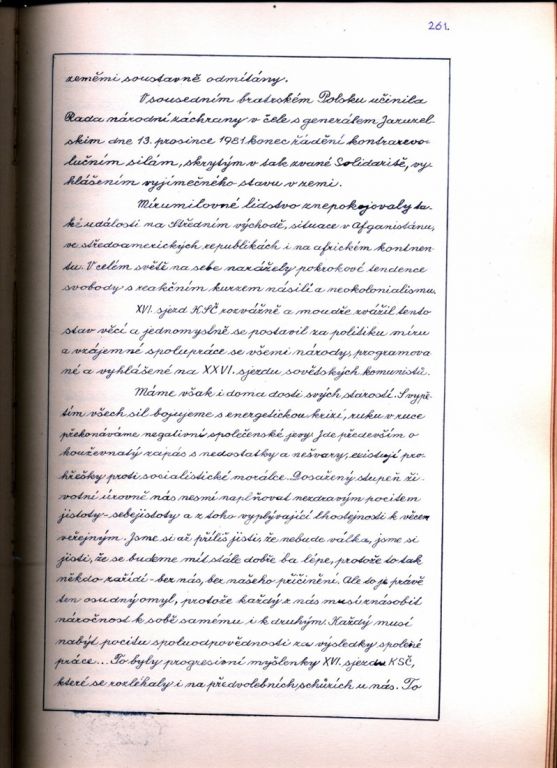 261.
zeměmi soustavně odmítány.
V sousedním bratrském Polsku učinila
Rada národní záchrany v čele s generálem Jaruzel-
skim dne 13. prosince 1981 konec řádění kontrarevo-
lučním silám, skrytým v tak zvané Solidaritě, vy-
hlášením vyjímečného stavu v zemi.
Mírumilovné lidstvo znepokojovaly ta-
ké události na Středním východě, situace v Afganistánu,
ve středoamerických republikách i na africkém kontnen-
tu. V celém světě na sebe narážely pokrokové tendence
svobody s reakčním kurzem násilí a neokolonialismu.
XVI. sjezd KSČ rozvážně a moudře zvážil tento
stav věcí a jednomyslně se postavil za politiku míru
a vzájemné spolupráce se všemi národy, programova
né a vyhlášené na XXVI. sjezdu sovětských komunistů.
Máme však i doma dosti svých starostí. S vypě-
tím všech sil bojujeme s energetickou krizí, ruku v ruce
překonáváme negativní společenské jevy. Jde především o
houževnatý zápas s nedostatky a nešvary, existují pro-
hřešky proti socialistické morálce. Dosažený stupeň ži-
votní úrovně nás nesmí naplňovat nezdravým pocitem
jistoty-sebejistoty a z toho vyplývající lhostejnosti k věcem
veřejným. Jsme si až příliš jisti, že nebude válka, jsme si
jisti, že se budeme mít stále dobře ba lépe, protože to tak
někdo zařídí - bez nás, bez našeho přičinění. Ale to je právě
ten osudný omyl, protože každý z nás musí znásobit
náročnost k sobě samému i k druhým. Každý musí
nabýt pocitu spoluodpovědnosti za výsledky společné
práce... To byly progresivní myšlenky XVI. sjezdu KSČ,
které se rozléhaly i na předvolebních schůzích u nás. To